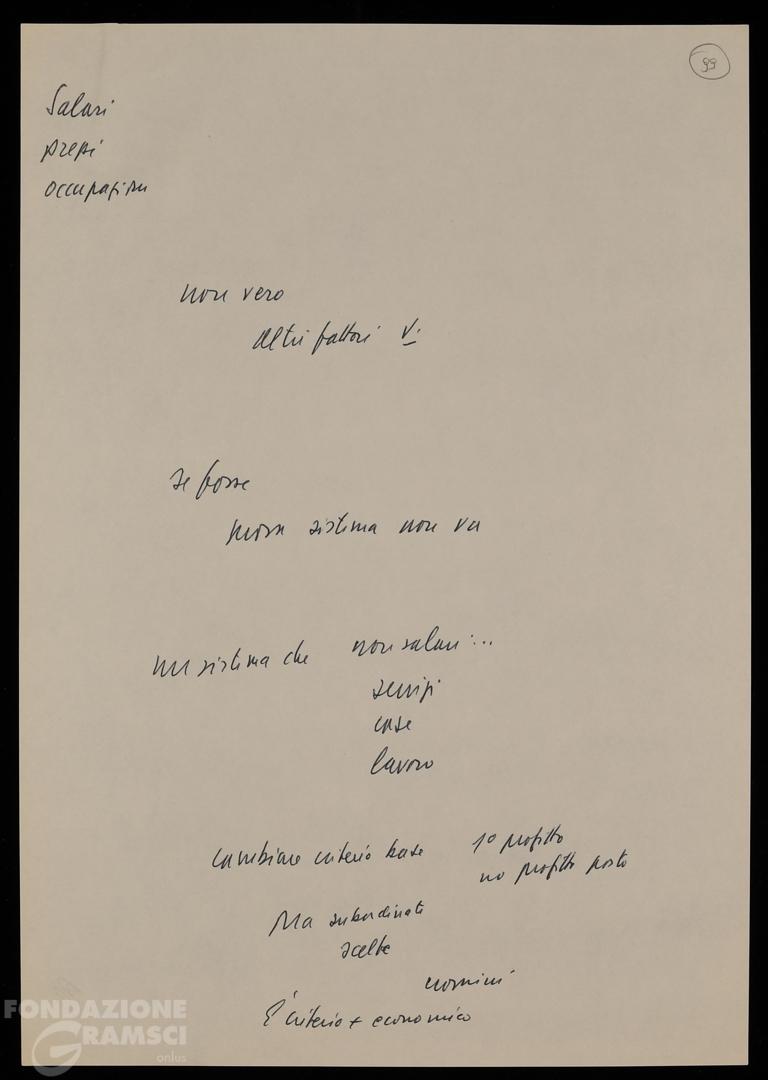 99
Salari
prezzi
occupazione
non vero
altri fattori V.
se fosse
sistema non va
un sistema che non salari ...
servizi
case
lavoro
cambiare criterio base 1º profitto
no profitto posto
Ma subordinate
scelte
uomini
È criterio + economico
FONDAZIONE
GRAMSCI
onlus